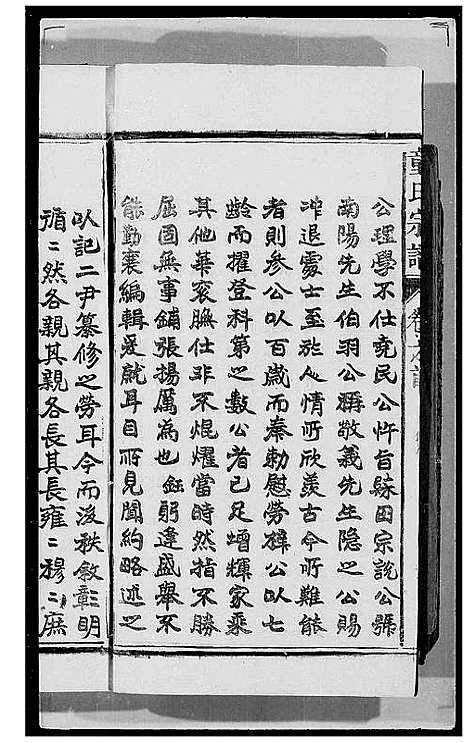 童氏宗譜
公理學不仕堯民公忤旨歸田宗說公號
南陽先生伯羽公稱敬義先生隱之公賜
冲退處士至於人情所欣羨古今所難能
者則參公以百歲而奉勅慰勞緯公以七
齡而擢登科第之數公者已足增輝家乘
其他華袞膴仕非不焜燿當時然指不勝
屈固無事鋪張揚厲為也 鈺躬逢盛舉不
能勤襄編輯爰就耳目所見聞約略述之
以記二尹纂修之勞耳今而後秩敘彰明
循ニ然各親其親各長其長雍ニ穆ニ庶